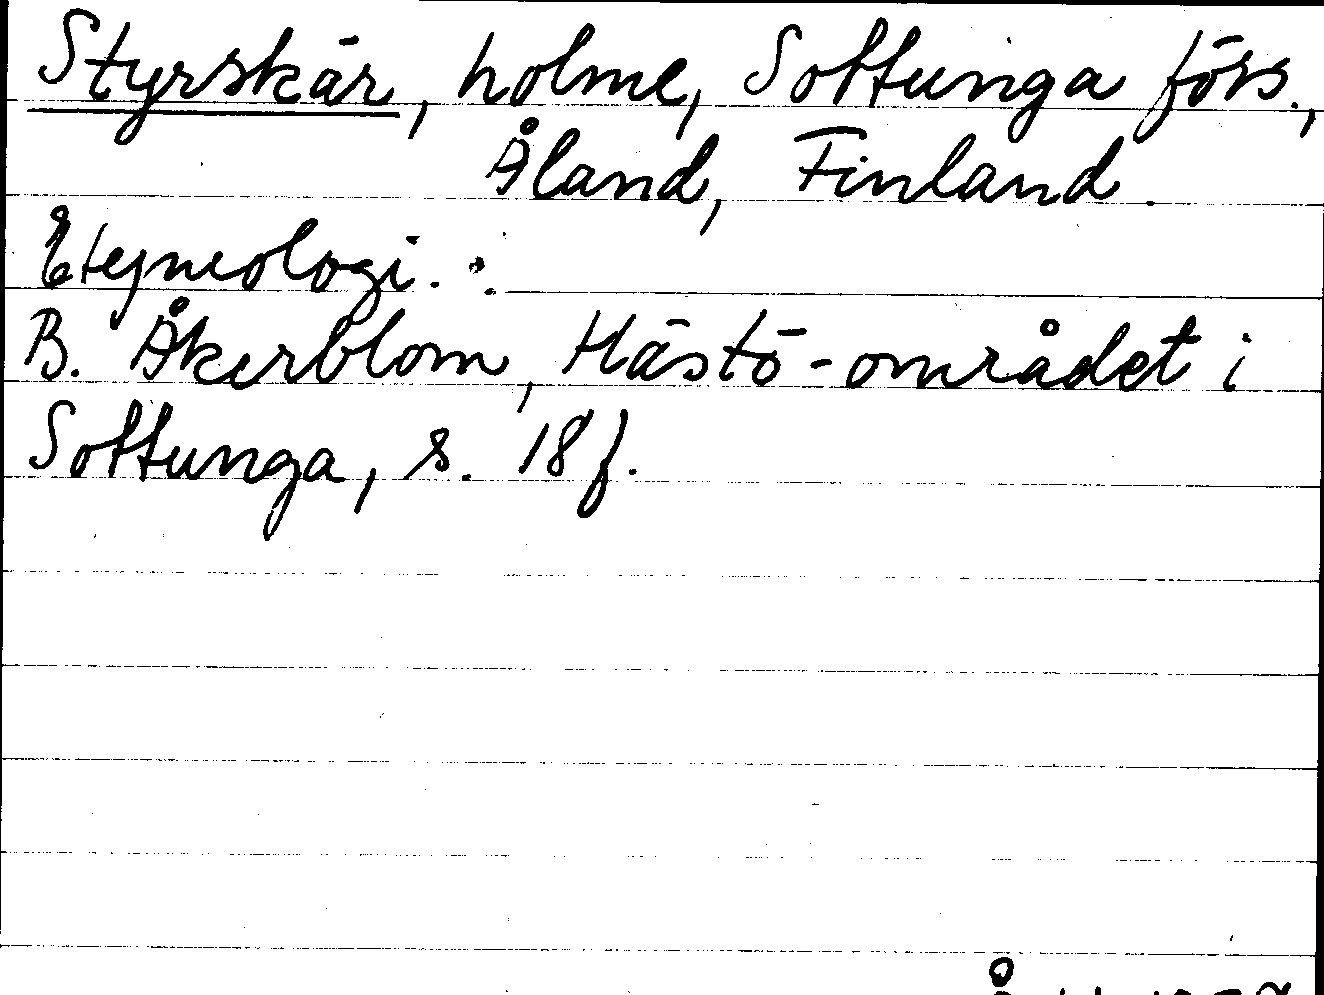 Styrskär, holme, Sottunga förs.,
Åland, Finland.
Etymologi.:
B. Åkerblom, Hästö-området i
Sottunga, s. 18 f.